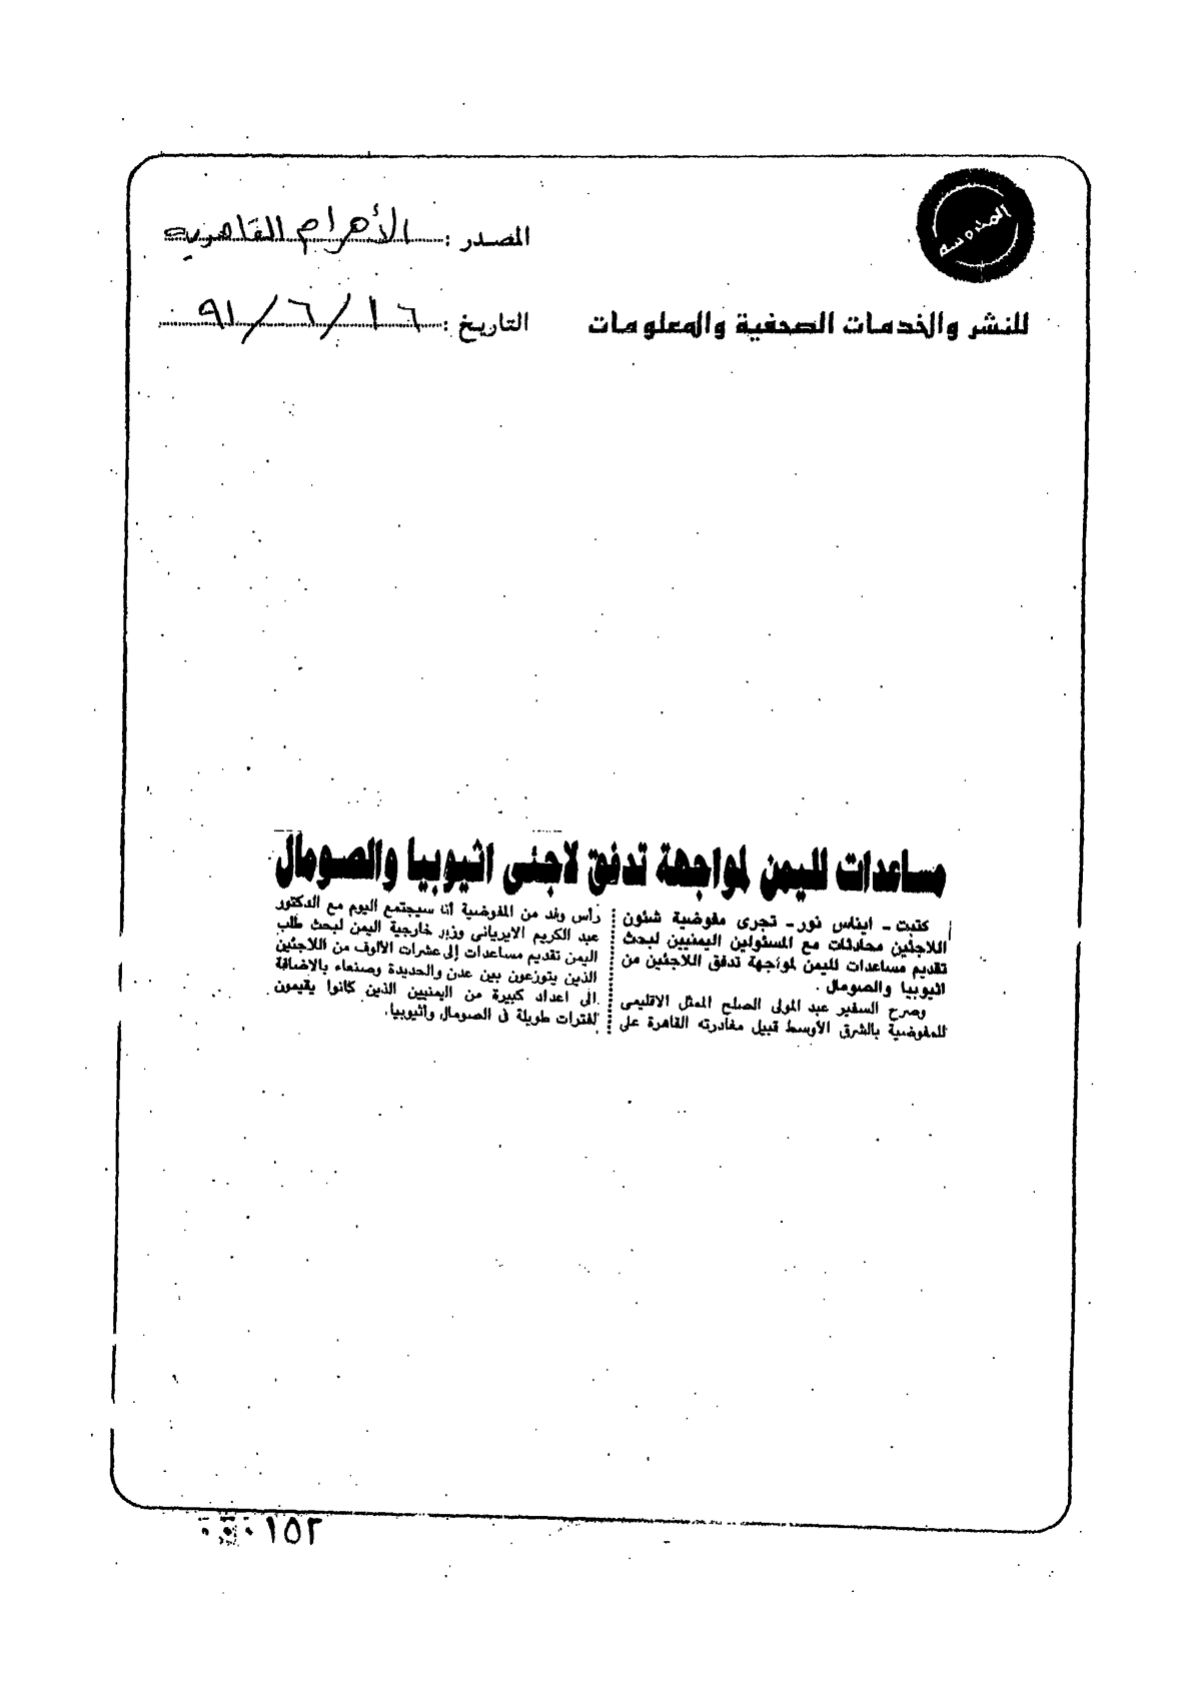 المندوسه
المصدر : الأهرام القاهرية
للنشر والخدمات الصحفية والمعلومات
التاريخ : ١٦ / ٦ / ٩١
مساعدات لليمن لمواجهة تدفق لاجئى اثيوبيا والصومال
كتبت - ايناس نور - تجرى مفوضية شئون
اللاجئين محادثات مع المسئولين اليمنيين لبحث
تقديم مساعدات لليمن لمواجهة تدفق اللاجئين من
اثيوبيا والصومال .
وصرح السفير عبد المولى الصلح الممثل الاقليمى
للمفوضية بالشرق الأوسط قبيل مغادرته القاهرة على
رأس وفد من المفوضية أنه سيجتمع اليوم مع الدكتور
عبد الكريم الايريانى وزير خارجية اليمن لبحث طلب
اليمن تقديم مساعدات إلى عشرات الالوف من اللاجئين
الذين يتوزعون بين عدن والحديدة وصنعاء بالاضافة
الى اعداد كبيرة من اليمنيين الذين كانوا يقيمون
لفترات طويلة فى الصومال واثيوبيا.
١٥٢